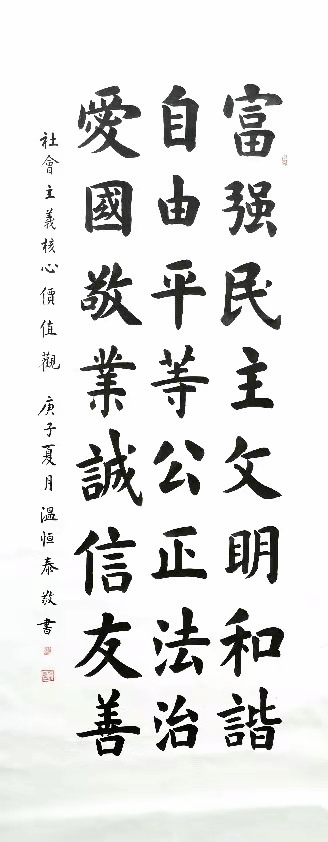 富强民主文明和諧
自由平等公正法治
愛國敬業誠信友善
社會主義核心價值觀 庚子夏月溫恒泰敬書